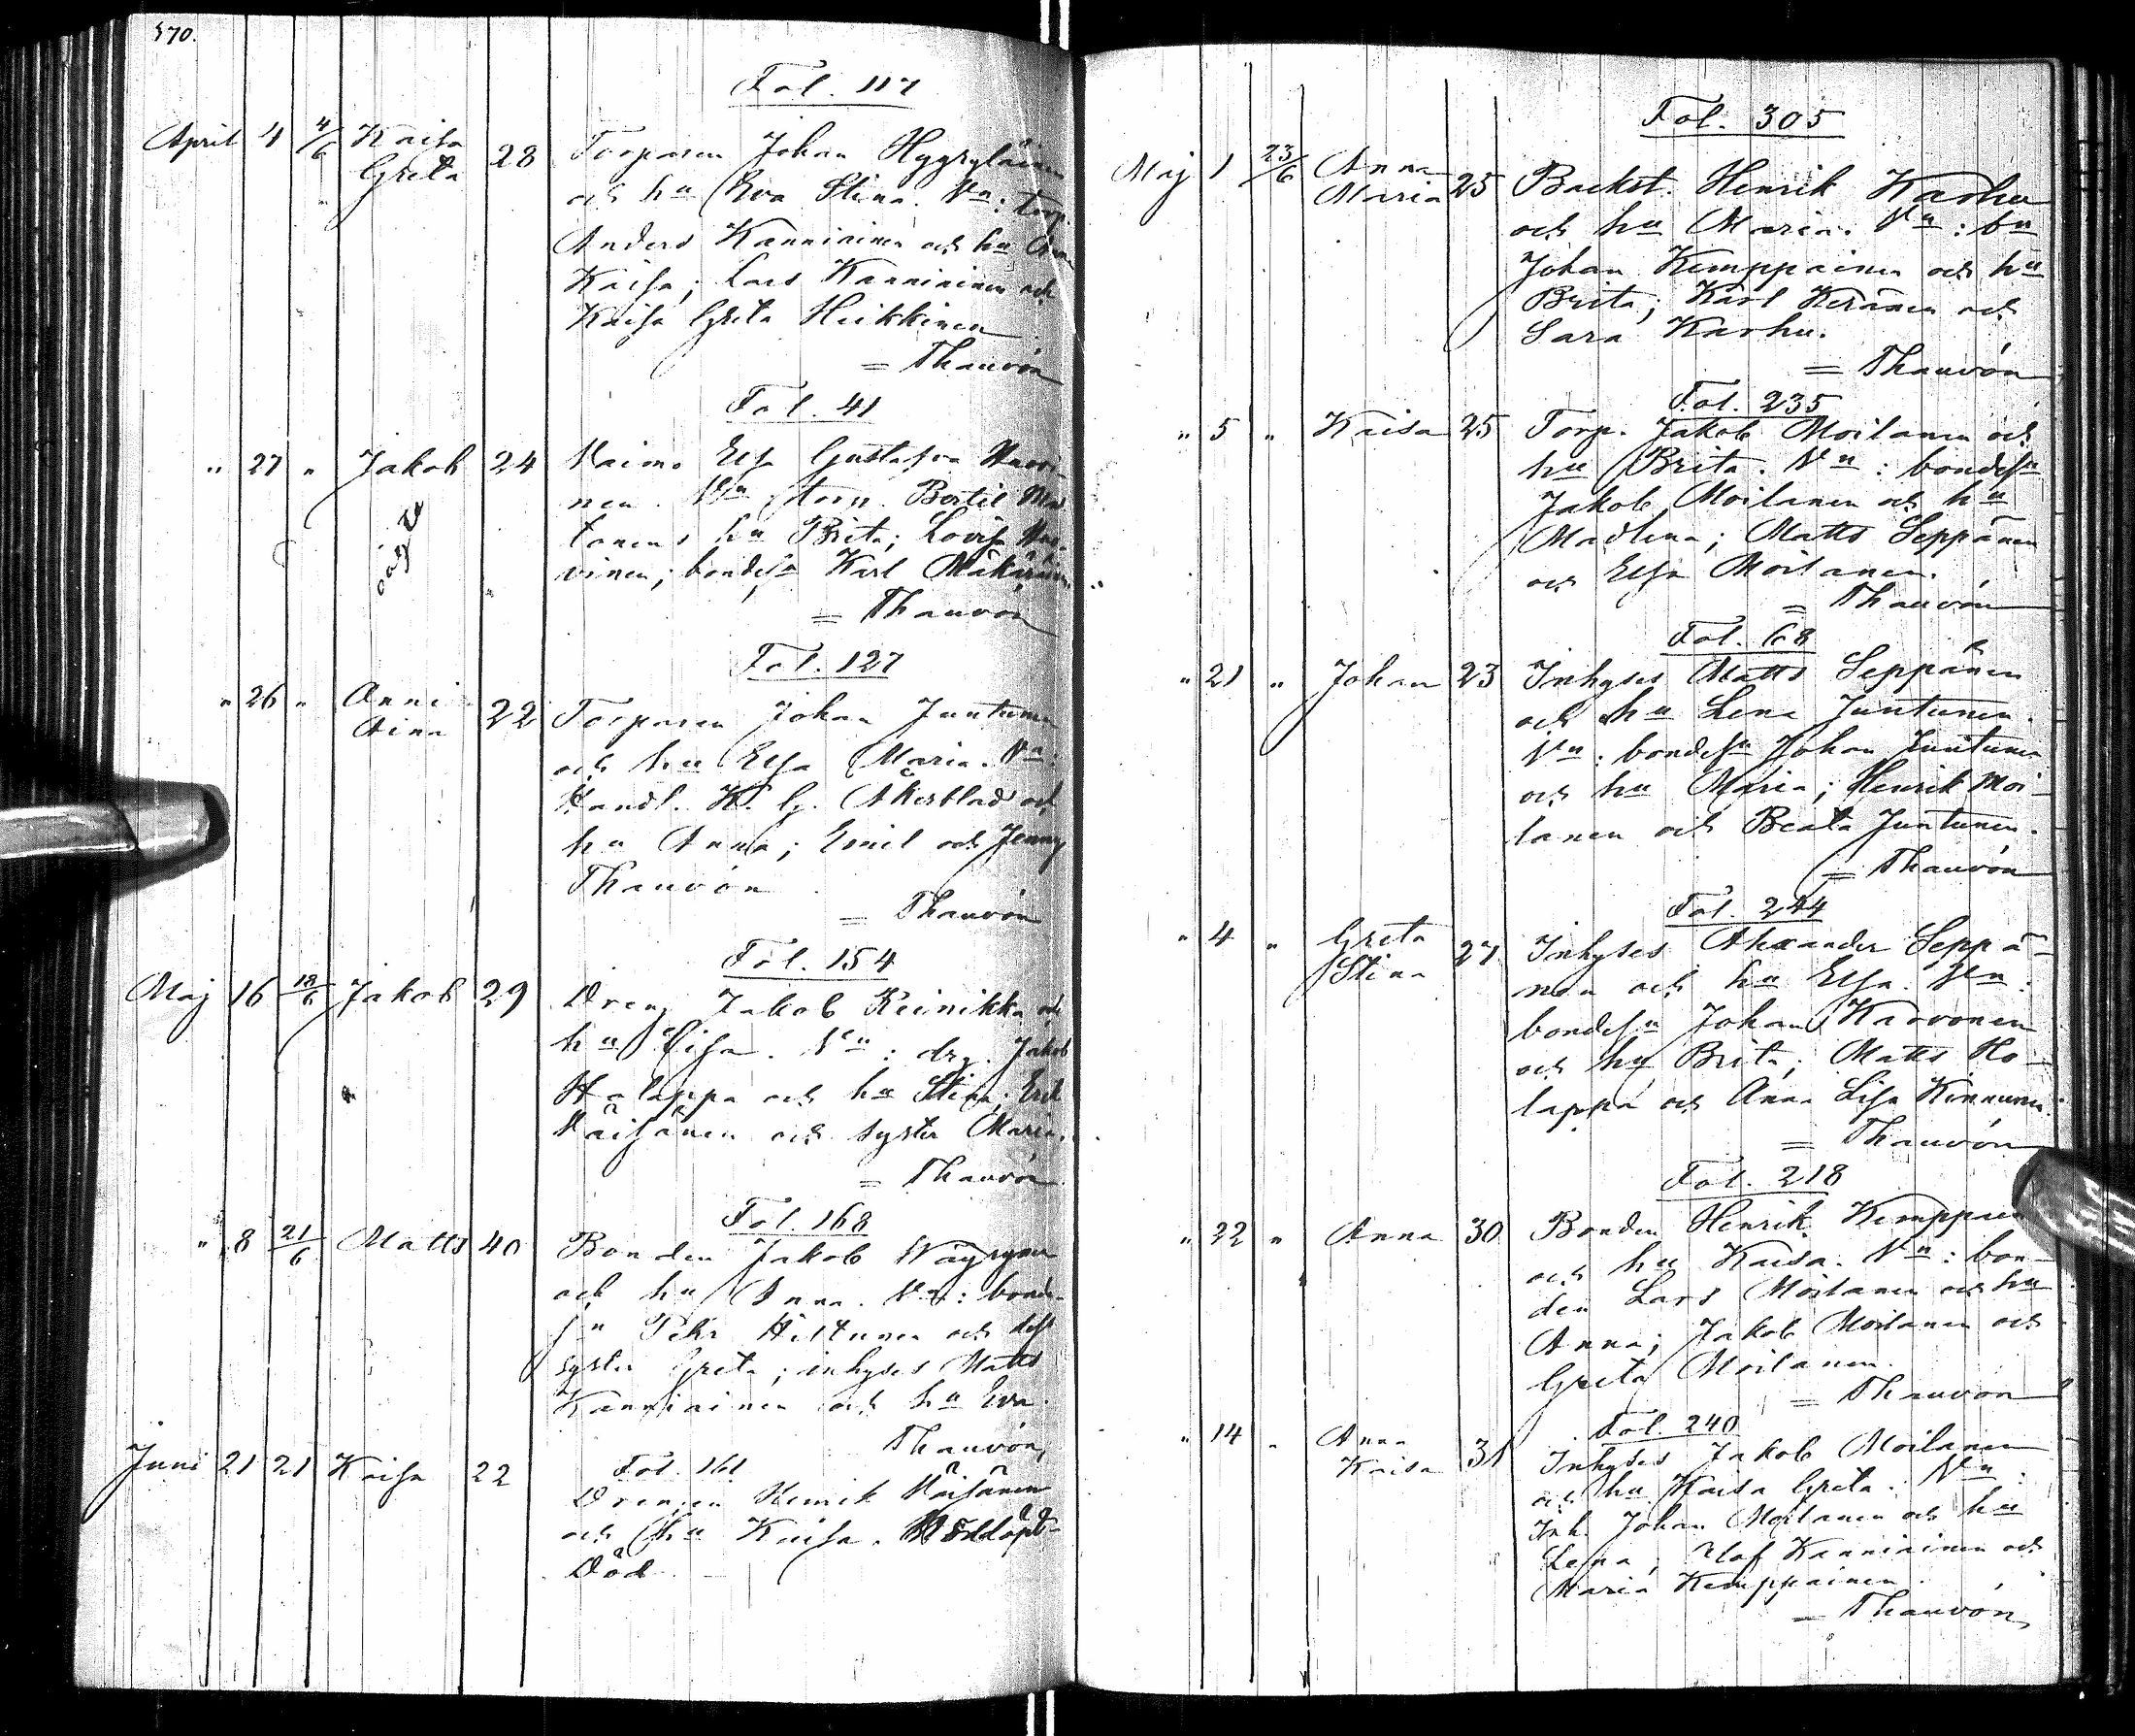 570.
Fol. 117
April 4 4/6 Kaisa
Greta 28 Torparen Johan Hyyryläinen
och hu Eva Stina. Vn: torp.
Anders Kanniainen och hu Anna
Kaisa; Lars Kanniainen och
Kaisa Greta Heikkinen
= Thauvón
Fol. 41
" 27 " Jakob 24 Elsa Gustafva
nen. Vn Bertil
hu Brita; Lovisa
vinen; bondes. Karl Mäkäräinen
oägta
= Thauvón
Fol. 127
" 26 " Anni
Aina 22 Torparen Johan Juntunen
och hu Elsa Maria. Vn:
Handl. K. G. Åkerblad och
hu Anna; Emil och Jenny
Thauvón
= Thauvón
Fol. 154
Maj 16 18/6 Jakob 29 Dreng Jakob Keinikka och
hu Lisa. Vn: drg. Jakob
Holappa och hu Stina; Erik
Väisänen och syster Maria.
= Thauvón
Fol. 168
" 8 21/6 Matts 40 Bonden Jakob Väyrynen
och hu Anna. Vn: bonde-
sn Pehr Hiltunen och dess
syster Greta; inhyses Matts
Kanniainen och hu Eva.
Thauvón
Fol. 161
Juni 21 21 Kaisa 22 Drengen Henrik Väisänen
och hu Kaisa. Nöddöpt
Död
Fol. 305
Maj 1 23/6 Anna
Maria 25 Backst. Henrik Karhu
och hu Maria. Vn: bn
Johan Kemppainen och hu
Brita; Karl Keränen och
Sara Karhu.
= Thauvón
Fol. 235
" 5 " Kaisa 25 Torp. Jakob Moilanen och
hu Brita. Vn: bondesn
Jakob Moilanen och hu
Madlena; Matts Seppänen
och Elsa Moilanen.
= Thauvón
Fol. 68
" 21 " Johan 23 Inhyses Matts Seppänen
och hu Lena Juntunen.
Vn: bondesn Johan Juntunen
och hu Maria; Henrik Moi-
lanen och Beata Juntunen.
= Thauvón
Fol. 244
" 4 " Greta
Stina 27 Inhyses Alexander Seppä-
nen och hu Elsa. Vn:
bondesn Johan Karvonen
och hu Brita; Matts Ho-
lappa och Anna Lisa Kinnunen.
= Thauvón
Fol. 218
" 22 " Anna 30 Bonden Henrik Kemppainen
och hu Kaisa. Vn: bon-
den Lars Moilanen och hu
Anna; Jakob Moilanen och
Greta Moilanen.
= Thauvón
Fol. 240
" 14 " Anna
Kaisa 31 Inhyses Jakob Moilanen
och hu Kaisa Greta. Vn:
Inh. Johan Moilanen och hu
Lena; Olof Kanniainen och
Maria Kemppainen.
= Thauvón